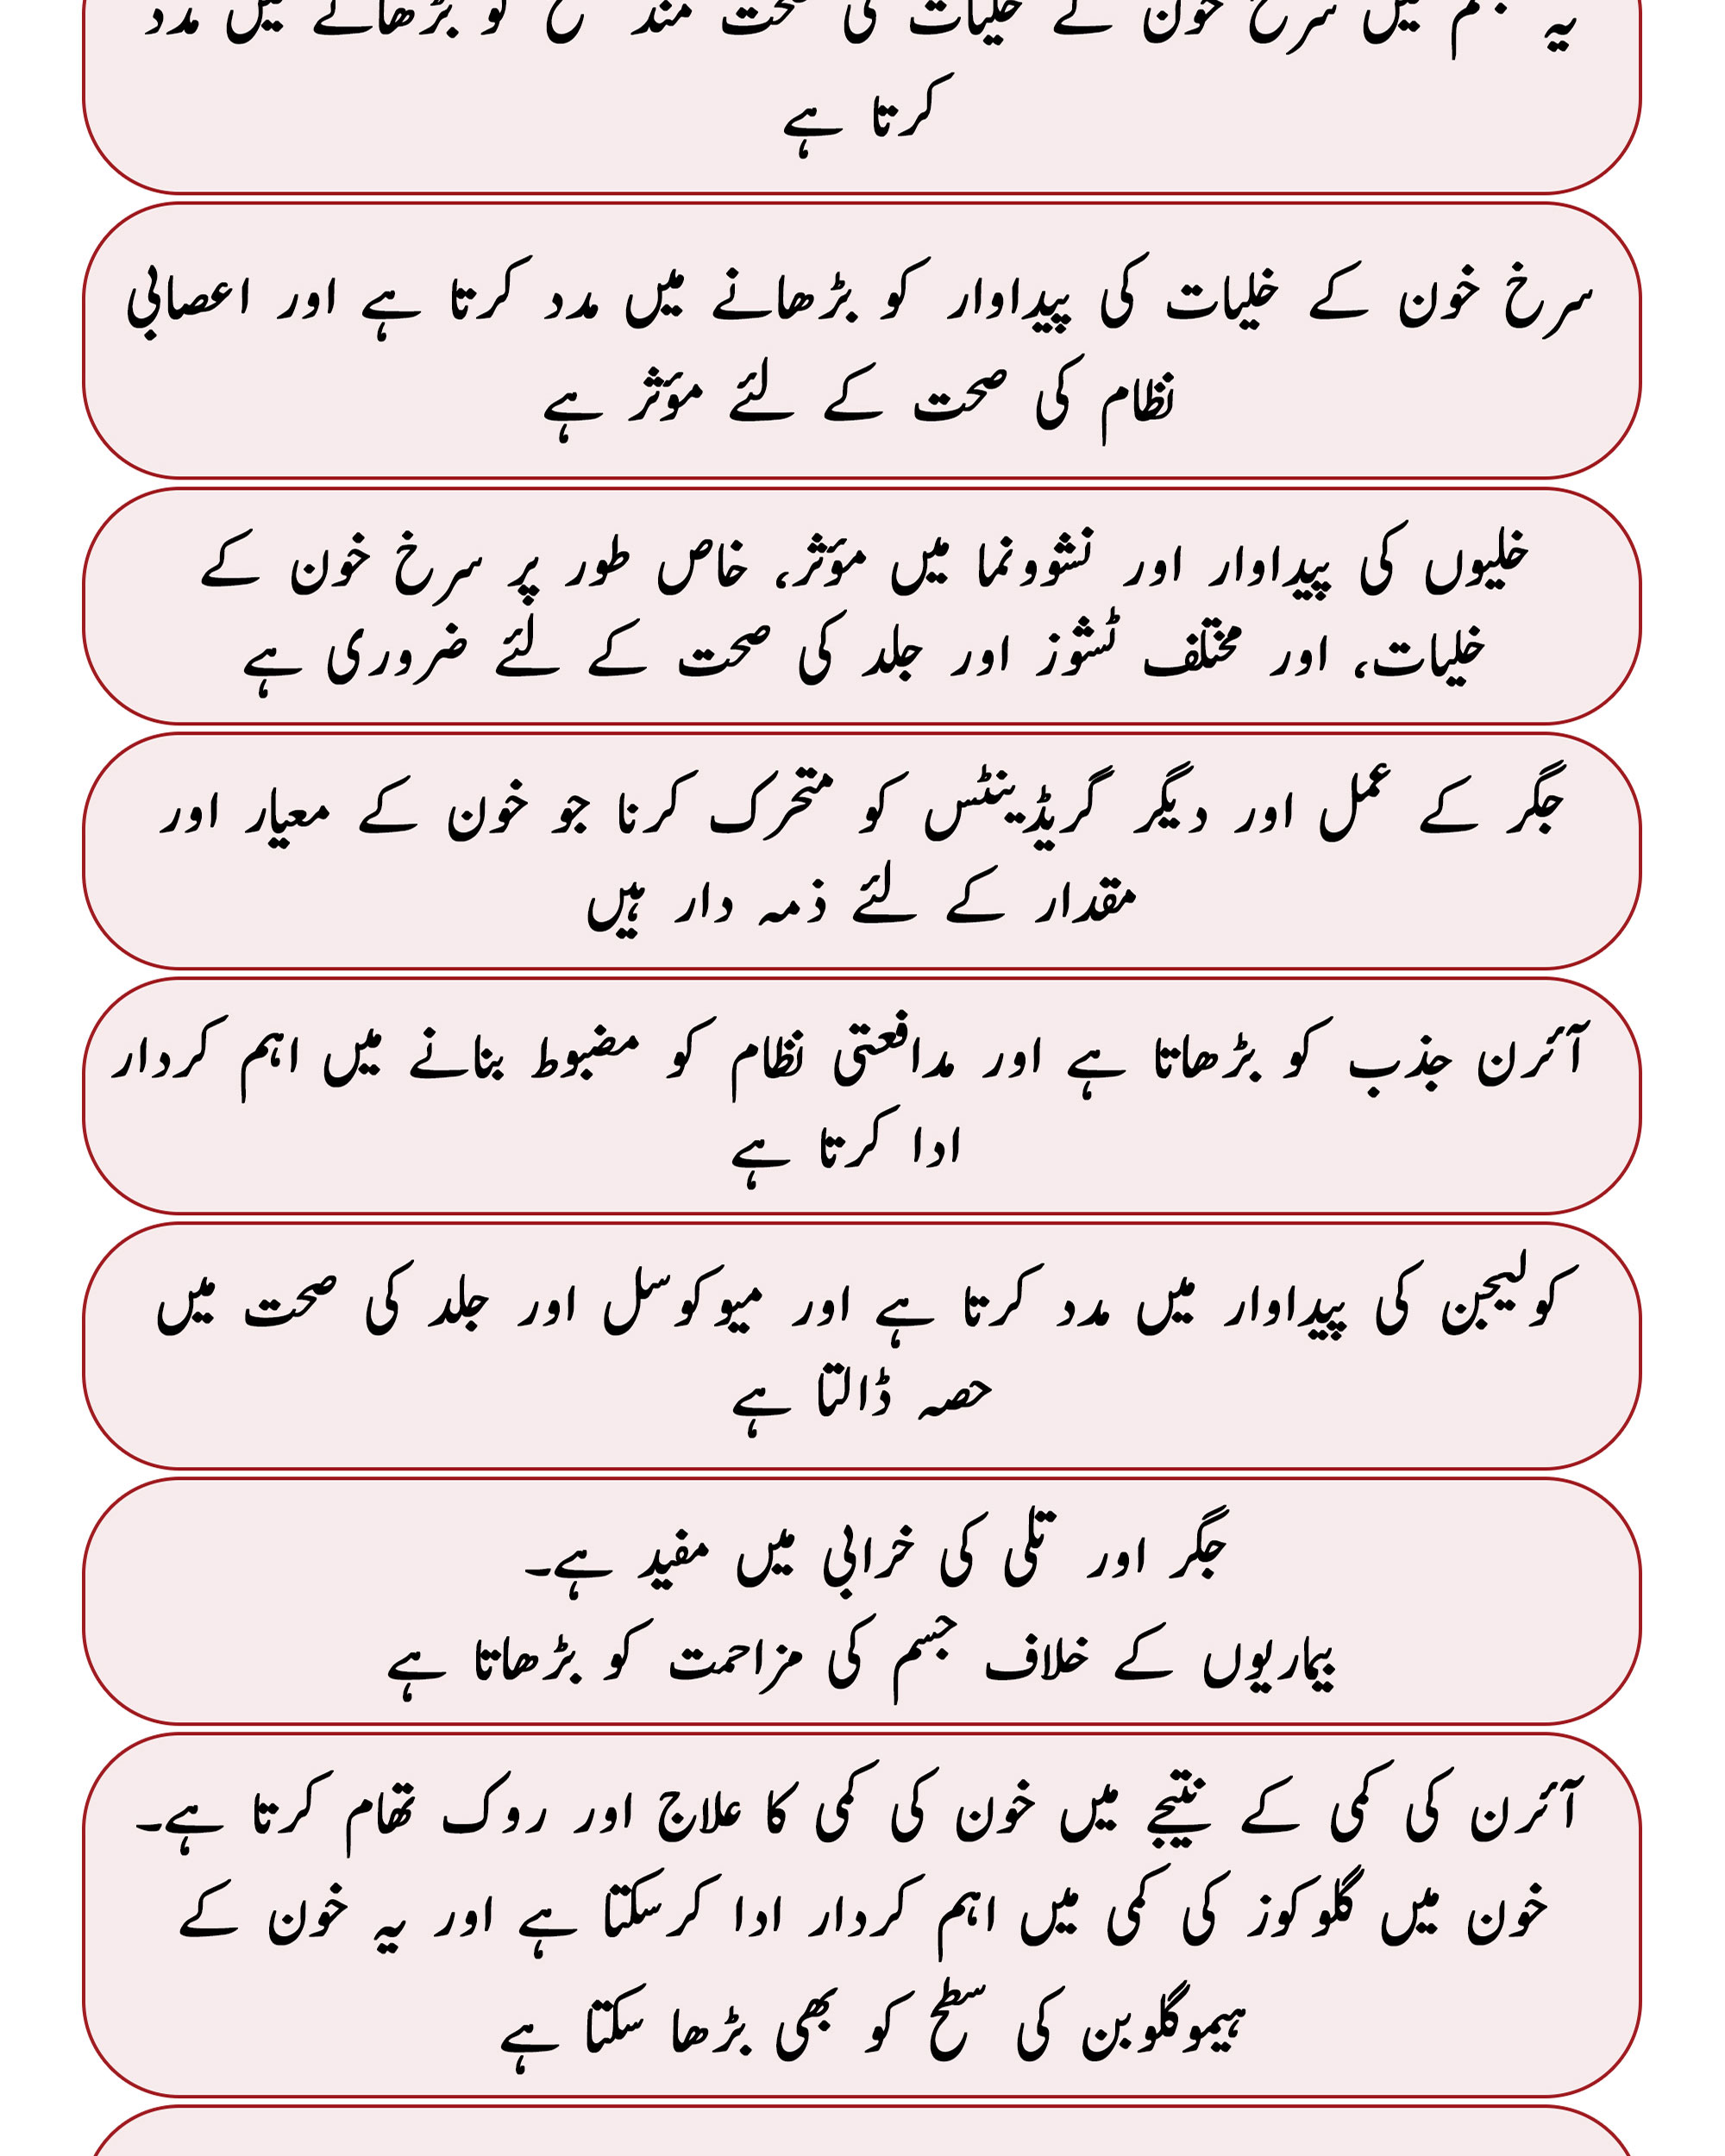 یہ جسم میں سرخ خون کے خلیات کی صحت مند سطح کو بڑھانے میں مدد
کرتا ہے
سرخ خون کے خلیات کی پیداوار کو بڑھانے میں مدد کرتا ہے اور اعصابی
نظام کی صحت کے لئے مؤثر ہے
خلیوں کی پیداوار اور نشوونما میں مؤثر، خاص طور پر سرخ خون کے
خلیات، اور مختلف ٹشوز اور جلد کی صحت کے لئے ضروری ہے
جگر کے عمل اور دیگر گریڈینٹس کو متحرک کرنا جو خون کے معیار اور
مقدار کے لئے ذمہ دار ہیں
آئرن جذب کو بڑھاتا ہے اور مدافعتی نظام کو مضبوط بنانے میں اہم کردار
ادا کرتا ہے
کولیجن کی پیداوار میں مدد کرتا ہے اور میوکوسل اور جلد کی صحت میں
حصہ ڈالتا ہے
جگر اور تلی کی خرابی میں مفید ہے۔
بیماریوں کے خلاف جسم کی مزاحمت کو بڑھاتا ہے
آئرن کی کمی کے نتیجے میں خون کی کمی کا علاج اور روک تھام کرتا ہے۔
خون میں گلوکوز کی کمی میں اہم کردار ادا کرسکتا ہے اور یہ خون کے
ہیموگلوبن کی سطح کو بھی بڑھا سکتا ہے